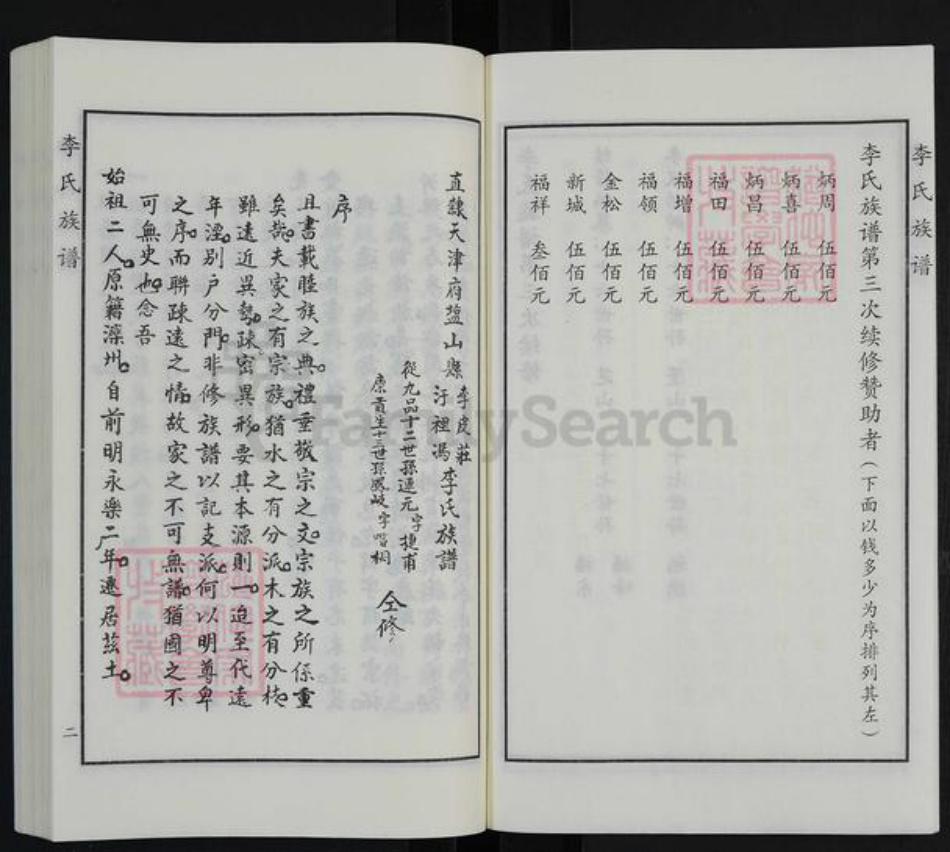 李氏族谱
李氏族谱第三次续修赞助者（下面以钱多少为序排列其左）
炳周 伍佰元
炳喜 伍佰元
炳昌 伍佰元
福田 伍佰元
福增 伍佰元
福领 伍佰元
金松 伍佰元
新城 伍佰元
福祥 叁佰元
直隸天津府盐山縣 李皮莊 汙裡馮 李氏族譜
從九品十二世孫連元字捷甫
廪貢生十三世孫鳳岐字喈桐
仝修
序
且書載睦族之典禮重敬宗之文宗族之所係重
矣哉夫家之有宗族猶水之有分派木之有分枝
雖遠近異勢踈密異形要其本源則一迨至代遠
年湮别户分門非修族譜以記支派何以明尊卑
之序而聯踈遠之情故家之不可無譜猶國之不
可無史也念吾
始祖二人原籍灤州自前明永樂二年遷居茲土
李氏族谱
二
FamilySearch